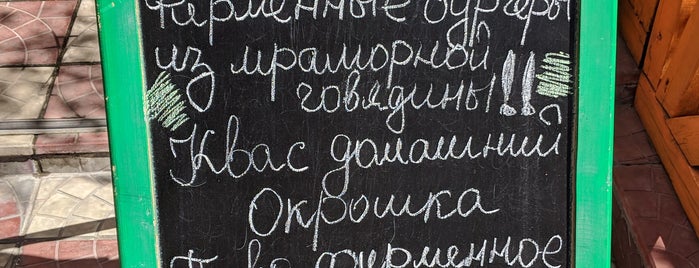 Фирменные бургеры
из мраморной
говядины!!
Квас домашний
Окрошка
Пиво фирменное